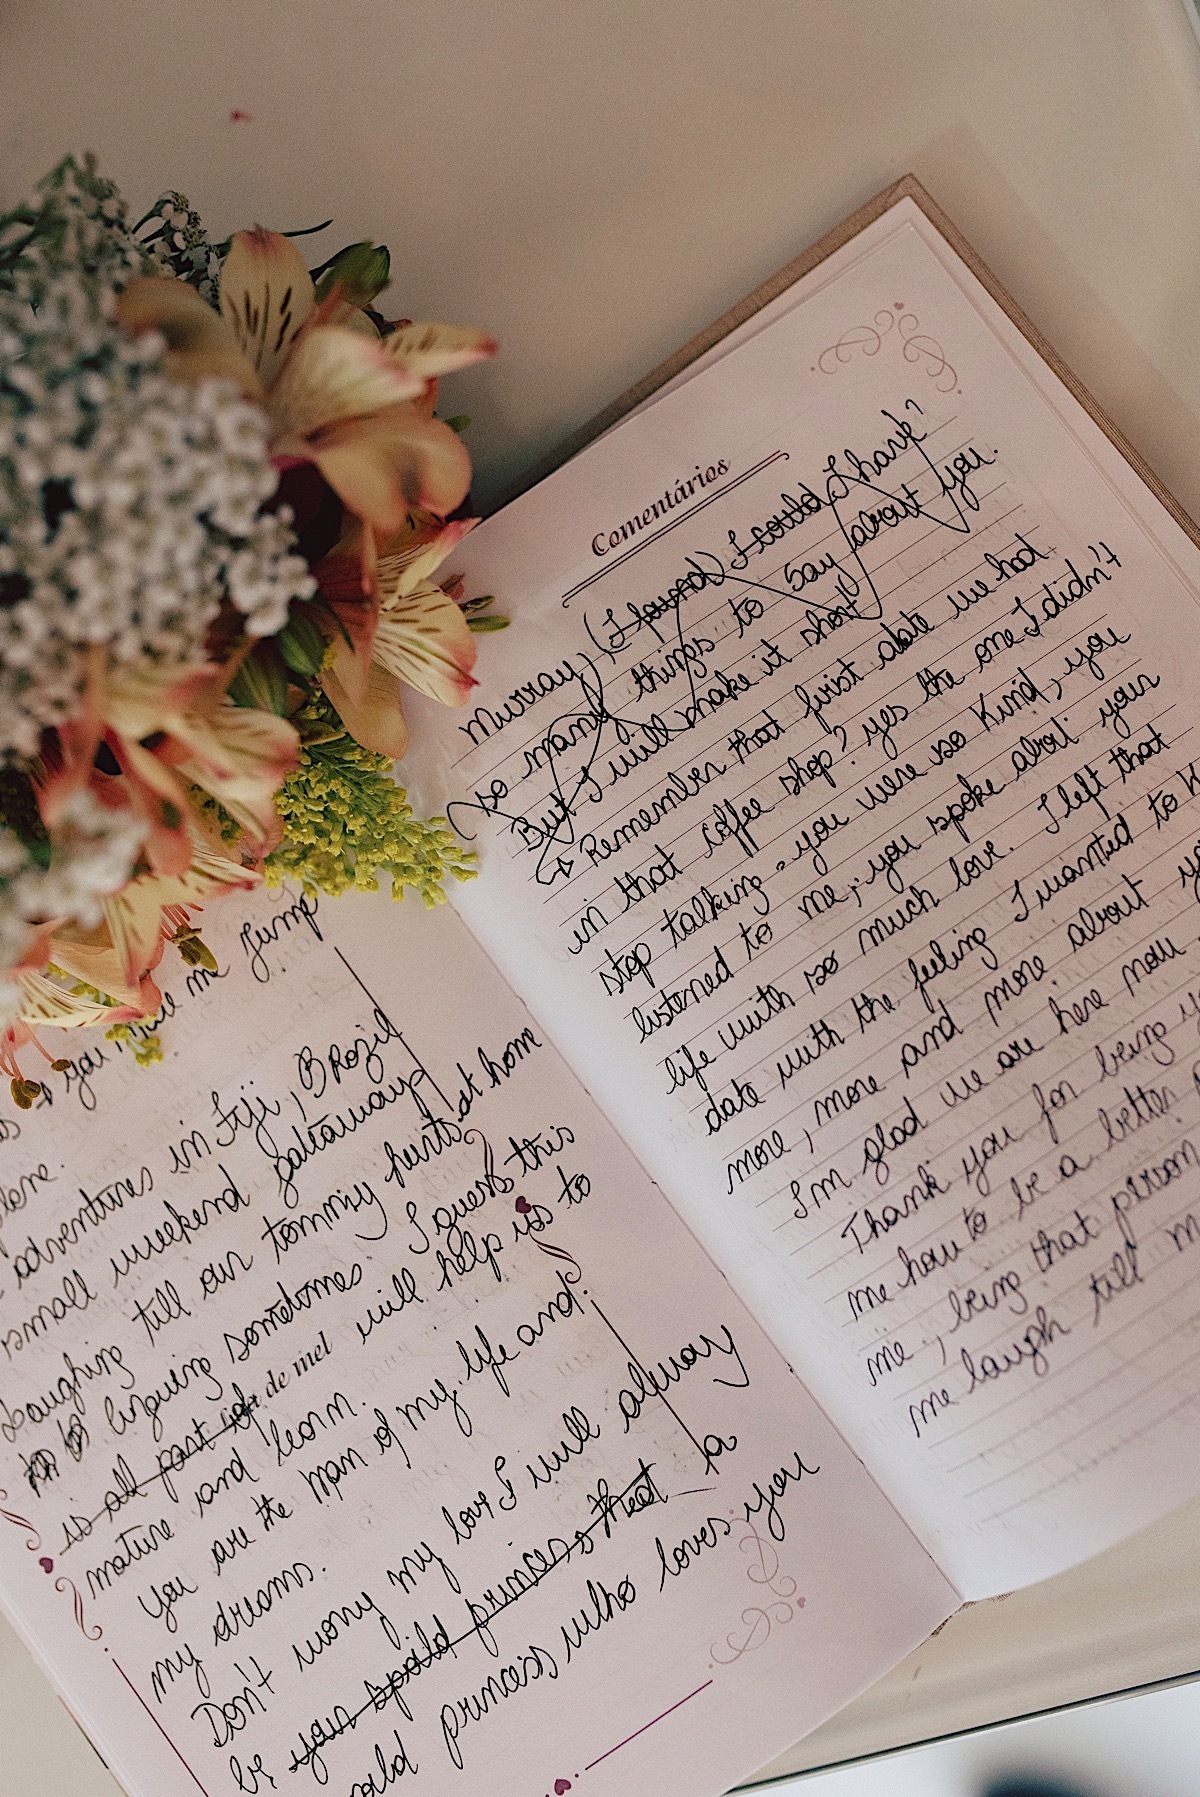 you make me Jump
adventures in Fiji, Brazil
small weekend
Laughing till our tommy hurts, at home
sometimes. I guess this
is all part of will help us to
de mel
mature and learn.
You are the man of my life and
my dreams.
Don't worry my love I will alway
be your spoild princess that a
princess who loves you
Comentários
Murray, (I found) I could I have?
so many things to say about you.
But I will make it short
→ Remember that first date we had
in that coffee shop? yes the one I didn't
stop talking - you were so kind, you
listened to me, you spoke about your
life with so much love. I left that
date with the feeling I wanted to
more, more and more about
I'm glad we are here now
Thank you for being
me how to be a better
me, being that person
me laugh till